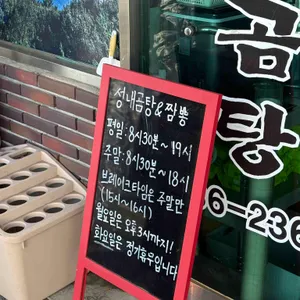 성내곰탕&짬뽕
평일:8시30분~19시
주말:8시30분~18시
브레이크타임은 주말만
(15시~16시)
월요일은 오후3시까지!
화요일은 정기휴무입니다
곰탕
6-236